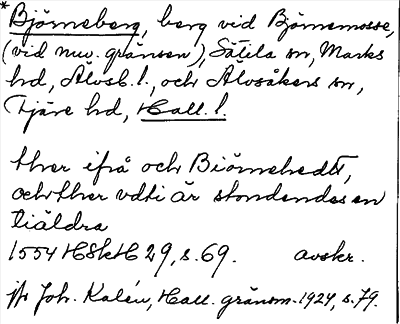 * Björneberg, berg vid Björnemosse,
(vid nuv. gränsen), Sätila sn, Marks
hd, Älvsb. l., och Älvsåkers sn,
Fjäre hd, Hall. l.
ther ifrå och Biörnehedt,
och ther vdti är stondendes en
tiäldra
1554 HSkH 29, s. 69. avskr.
jfr Joh. Kalén, Hall. gränsm. 1924, s. 79.